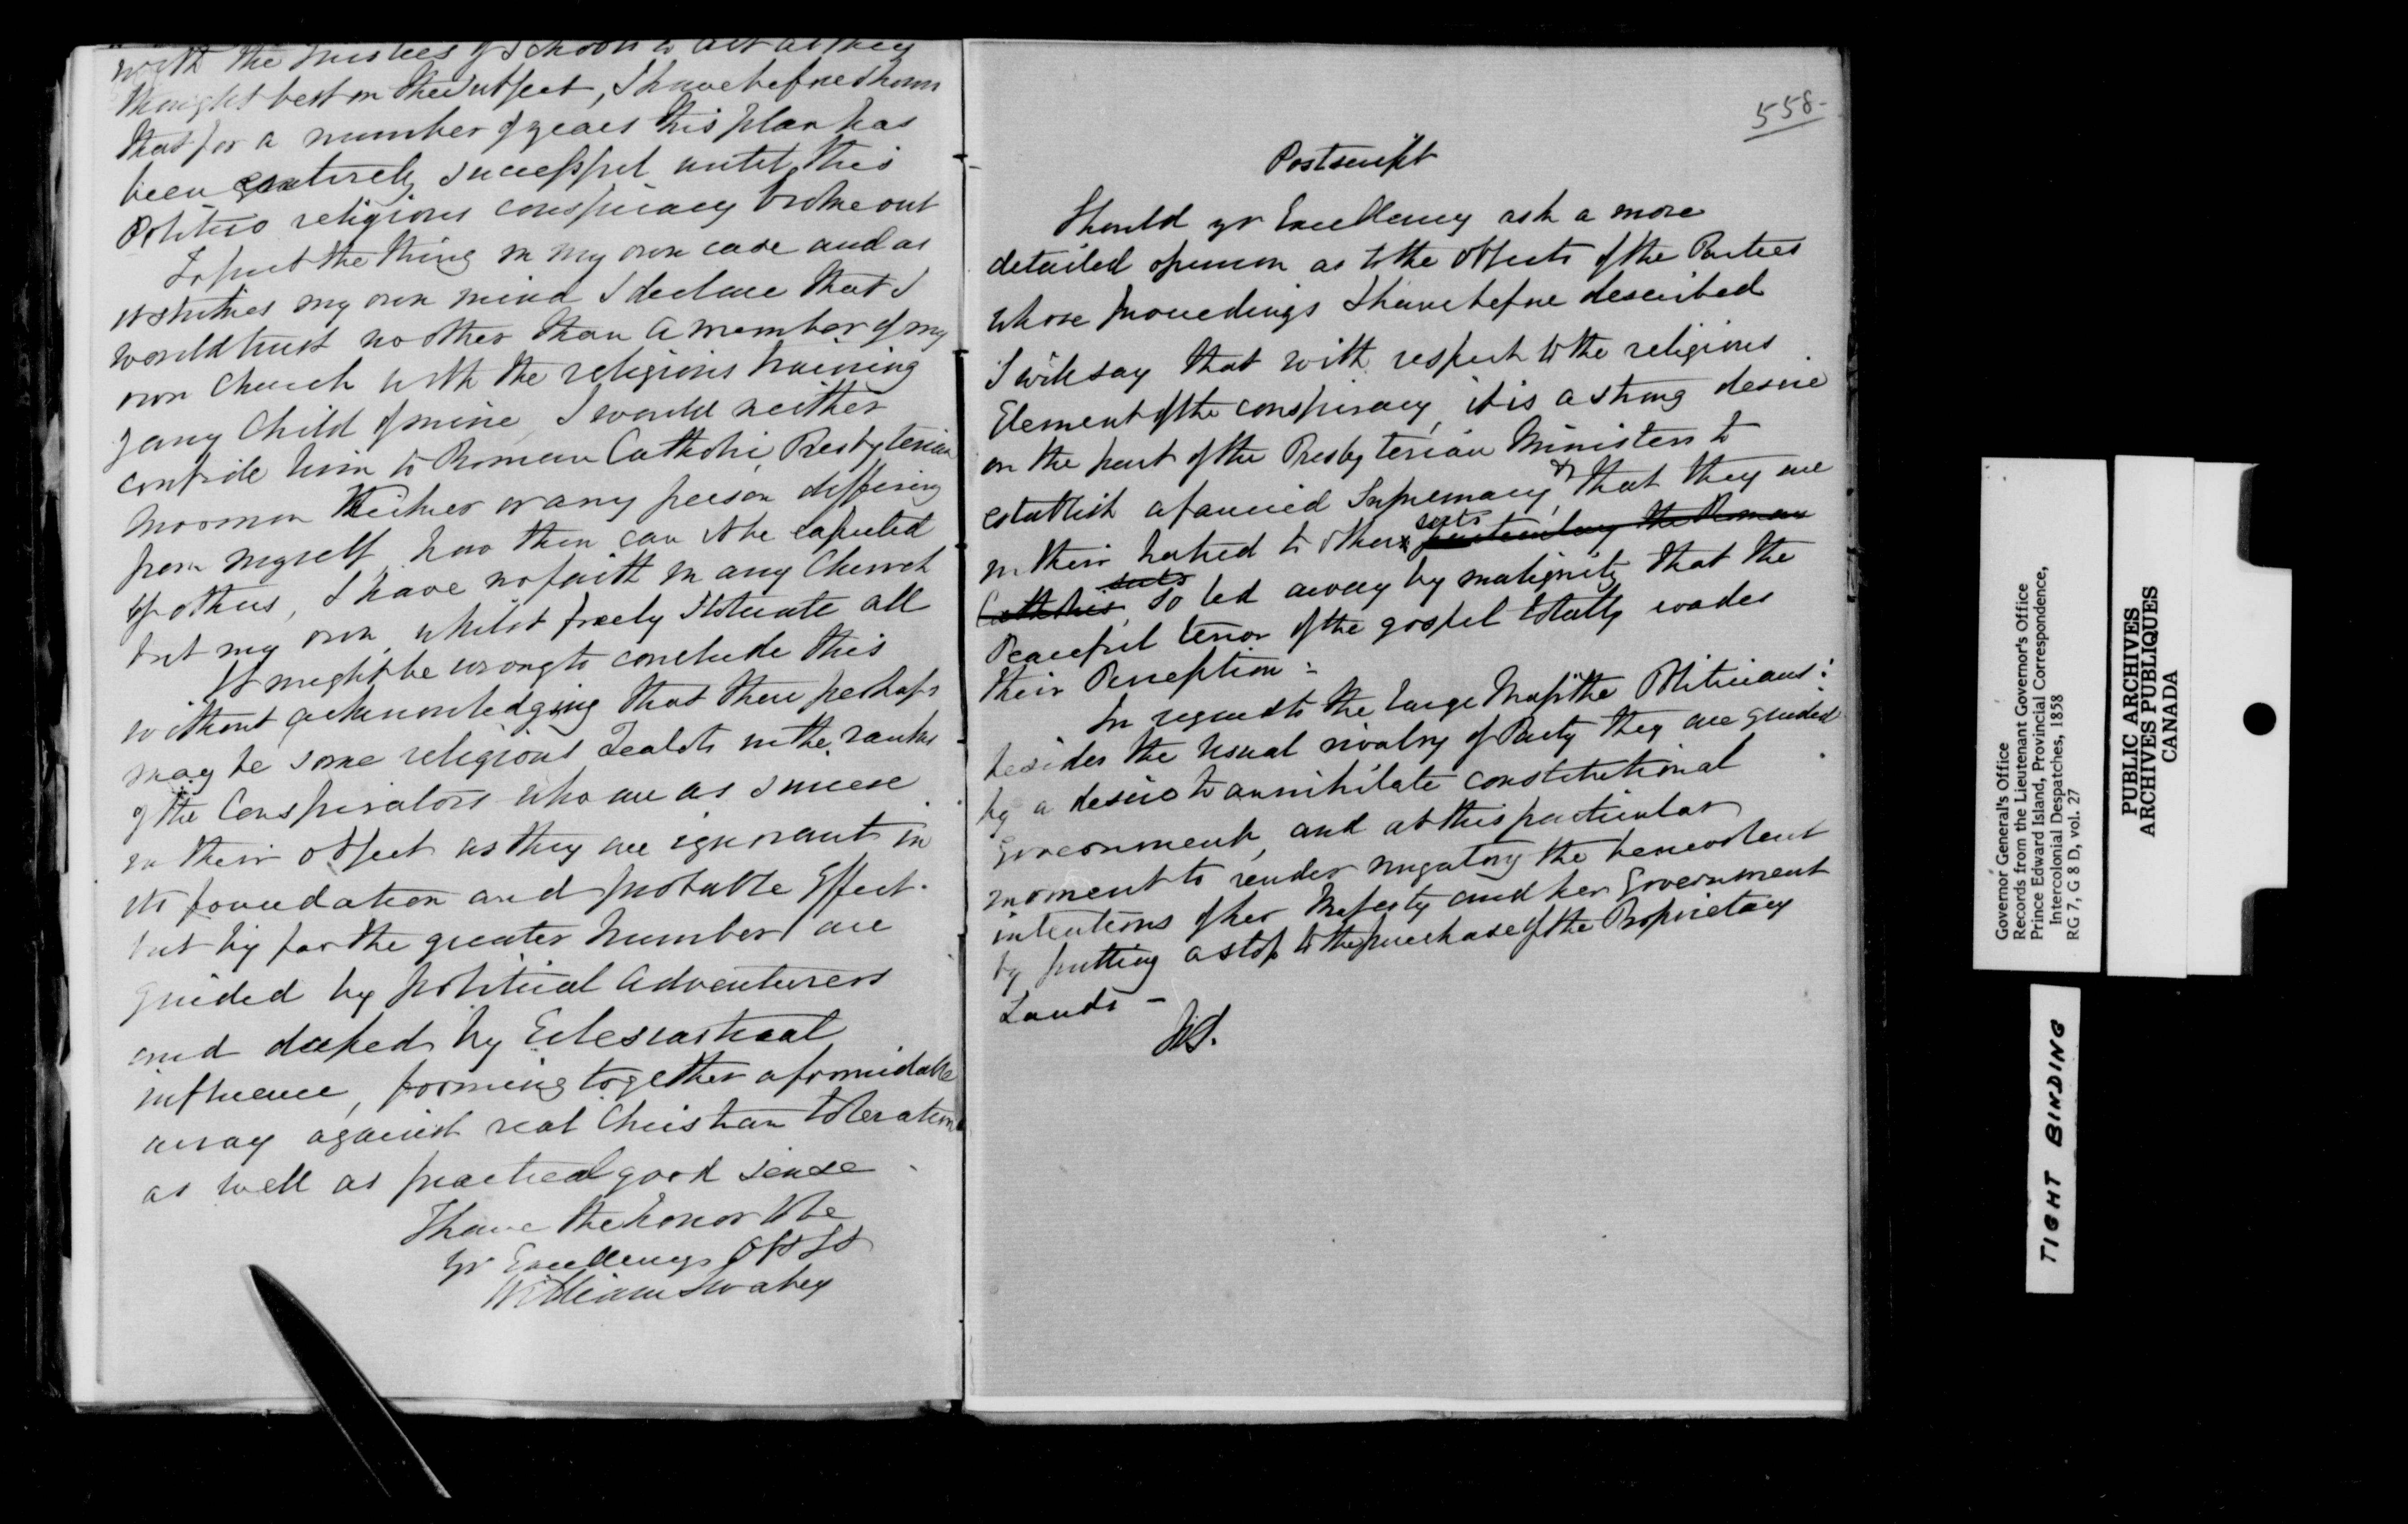 with the Trustees of Schools to act as they
thought best on the subject, I have before shown
that for a number of years this plan has
been entirely successful until this
Politico religious conspiracy broke out
To put the thing in my own case and as
it strikes my own mind I declare that I
would trust no other than a member of my
own church with the religious training
of any Child of mine, I would neither
confide him to Roman Catholic, Presbyterian
Mormon or any person differing
from myself, how then can it be expected
of others, I have no faith in any Church
but my own, whilst freely tolerate all
It might be wrong to conclude this
without acknowledging that there perhaps
may be some religious Zealots in the ranks
of the Conspirators who are as sincere
in their object as they are ignorant in
its foundation and probable Effect.
but by far the greater Number are
guided by political adventurers
and duped by Eclesiastical
influence, forming together a formidable
array against real Christian toleration
as well as practical good sense
I have the honor to be
yr Excellencys
William Swabey
558-
Postscript
Should yr Excellency ask a more
detailed opinion as to the objects of the Parties
whose proceedings I have before described
I will say that with respect to the religious
Element of the conspiracy, it is a strong desire
on the part of the Presbyterian Ministers to
establish a fancied Supremacy, & that they are
in their hatred to other sects particularly the Roman
Catholics sects so led away by malignity that the
Peaceful tenor of the gospel totally evades
their Perception -
In regard to the large Mass the Politicians:
besides the usual rivalry of Party they are guided
by a desire to annihilate constitutional
government, and at this particular
moment to render nugatory the benevolent
intentions of her Majesty and her Government
by putting a stop to the purchase of the Proprietary
Lands -
WS.
Governor General's Office
Records from the Lieutenant Governor's Office
Prince Edward Island, Provincial Correspondence,
Intercolonial Despatches, 1858
RG 7, G 8 D, vol. 27
PUBLIC ARCHIVES
ARCHIVES PUBLIQUES
CANADA
TIGHT BINDING